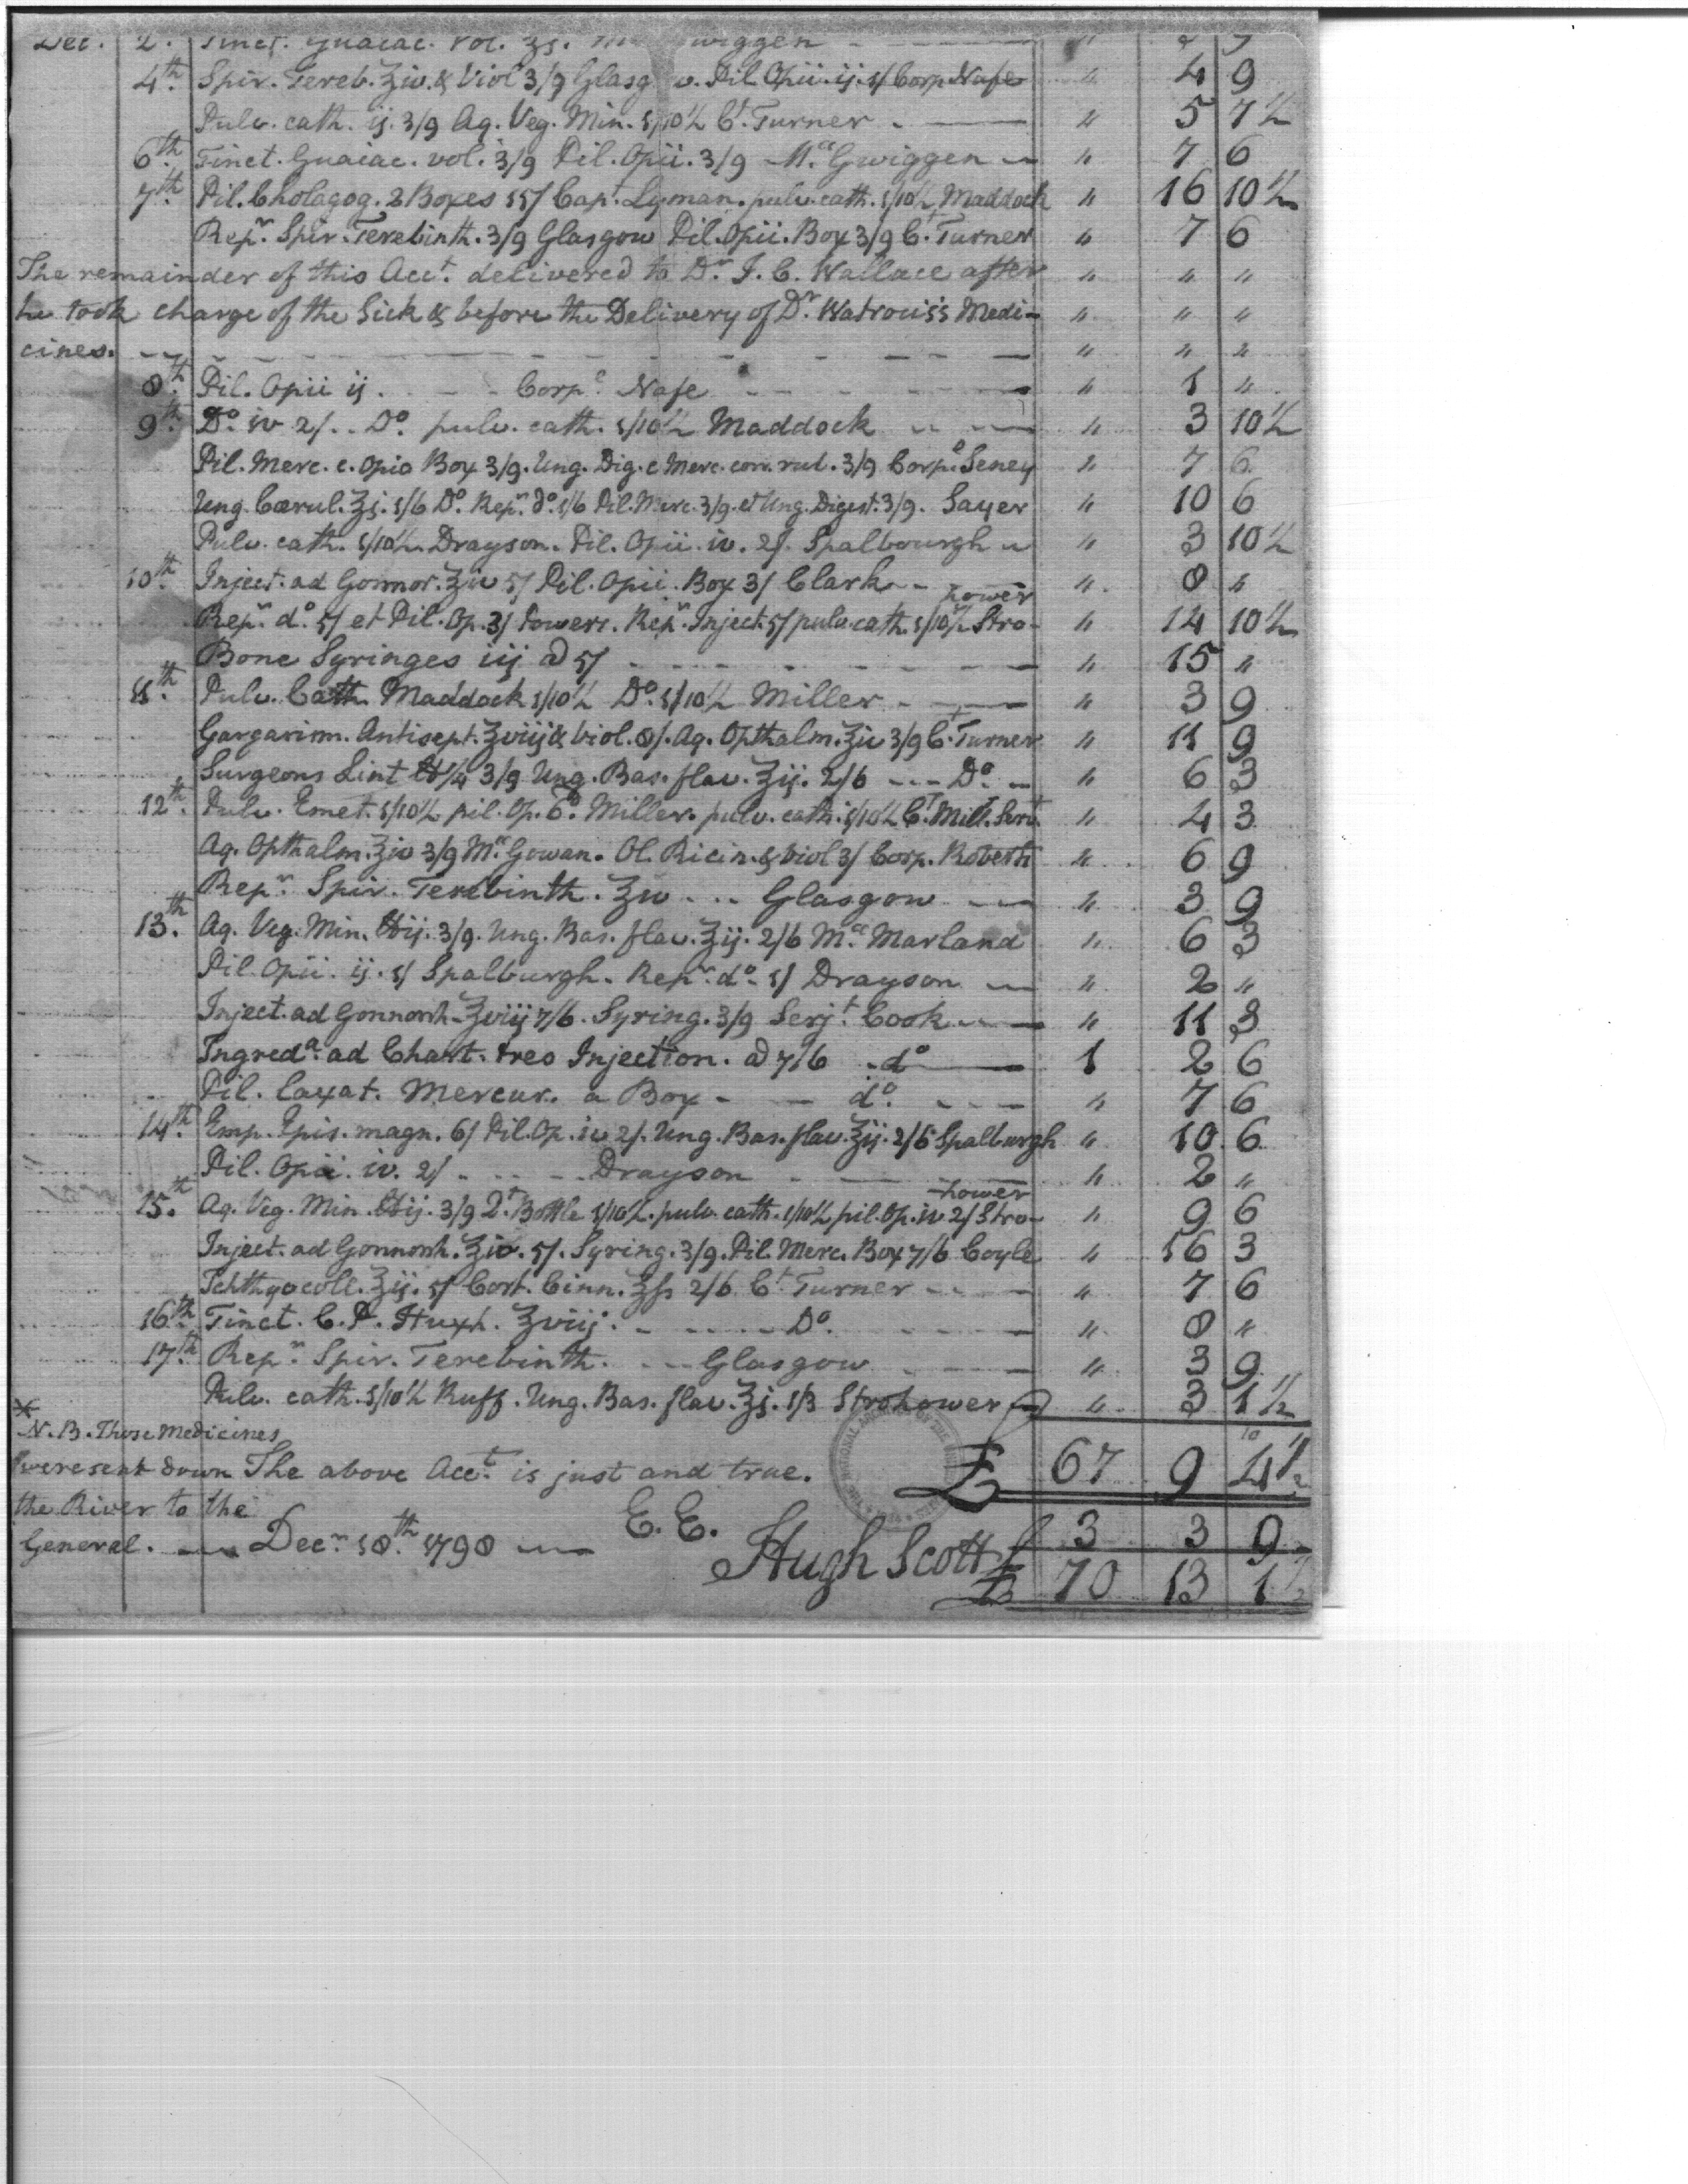 Dec. 2. Tinct. Guaiac. vol. ʒj. wiggen
4th. Spir. Tereb. ʒiv. & Viol 3/9 Glasg w. Pil Opii. ij. 1/ Corp Nafe " 4 9
Pulv. cath. ij. 3/9 Aq. Veg. Min. 1/10½ Ct. Turner " 5 7½
6th. Tinct. Guaiac. vol. 3/9 Pil. Opii. 3/9 Mc.Gwiggen " 7 6
7th. Pil. Cholagog. 2 Boxes 15/ Capt. Lyman. pulv. cath. 1/10½ Maddock " 16 10½
Repn. Spir. Terebinth. 3/9 Glasgow Pil. Opii. Box 3/9 Ct. Turner " 7 6
The remainder of this Acct. delivered to Dr. J. C. Wallace after " " "
he took charge of the Sick & before the Delivery of Dr. Watrous's Medi- " " "
cines. " " "
8th. Pil. Opii ij. Corpl. Nafe " 1 "
9th. Do. iv 2/. Do. pulv. cath. 1/10½ Maddock " 3 10½
Pil. Merc. c. Opio Box 3/9. Ung. Dig. c Merc. corr. rub. 3/9 Corpo. Seney " 7 6
Ung. Cærul. ʒj. 1/6 Do. Repn. do. 1/6 Pil. Merc. 3/9. et Ung. Digest. 3/9. Sayer " 10 6
Pulv. cath. 1/10½. Drayson. Pil. Opii. iv. 2/. Spalbourgh " 3 10½
10th. Inject. ad Gonnor. ʒiv 5/ Pil. Opii. Box 3/ Clark " 8 "
hower
Repn. do. 5/ et Pil. Op. 3/ Powers. Repn. Inject. 5/ pulv. cath. 1/10½ Stro- " 14 10½
Bone Syringes iij @ 5/ " 15 "
11th. Pulv. Cath. Maddock 1/10½ Do. 1/10½ Miller " 3 9
Gargarism. Antisept. ʒviij & Viol. 8/. Aq. Opthalm. ʒiv 3/9 Ct. Turner " 11 9
Surgeons Lint ℔¼ 3/9 Ung. Bas. flav. ʒij. 2/6 Do. " 6 3
12th. Pulv. Emet. 1/10½ pil. Op. 6d. Miller. pulv. cath. 1/10½ Ct. Mill. Servt. " 4 3
Aq. Opthalm. ʒiv 3/9 Mc.Gowan. Ol. Ricin. & Viol 3/ Corp. Roberts " 6 9
Repn. Spir. Terebinth. ʒiv Glasgow " 3 9
13th. Aq. Veg. Min. ℔ij. 3/9. Ung. Bas. flav. ʒij. 2/6 Mc.Marland " 6 3
Pil. Opii. ij. 1/ Spalburgh. Repn. do. 1/ Drayson " 2 "
Inject. ad Gonnorrh. ʒviij 7/6. Syring. 3/9 Serjt. Cook " 11 3
Ingreda. ad Chart. tres Injection. @ 7/6 do 1 2 6
Pil. laxat. Mercur. a Box do. " 7 6
14th. Emp. Epis. magn. 6/ Pil. Op. iv 2/. Ung. Bas. flav. ʒij. 2/6 Spalburgh " 10 6
Pil. Opii. iv. 2/ Drayson " 2 "
hower
15th. Aq. Veg. Min. ℔ij. 3/9 Qt. Bottle 1/10½. pulv. cath. 1/10½ pil. Op. iv 2/ Stro- " 9 6
Inject. ad Gonnorrh. ʒiv. 5/. Syring. 3/9. Pil. Merc. Box 7/6 Coyle " 16 3
Ichthyocoll. ʒij. 5/ Cort. Cinn. ʒſs 2/6 Ct Turner " 7 6
16th. Tinct. C. P. Huxh. ʒviij. Do. " 8 "
17th. Repn. Spir. Terebinth. Glasgow " 3 9
Pulv. cath. 1/10½ Ruff. Ung. Bas. flav. ʒj. 1/3 Strohower " 3 1½
N.B. Those Medicines
were sent down The above Acct. is just and true. £ 67 9 4½
the River to the
General. Decr. 18th. 1790 E. E. 3 3 9
Hugh Scott £ 70 13 1½